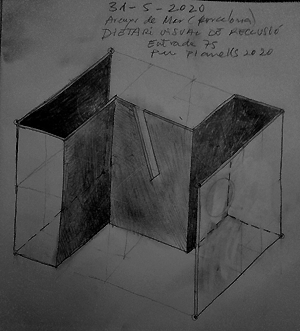 31-5-2020
Arenys de Mar (Barcelona)
DIETARI VISUAL DE RECLUSIÓ
Entrada 75
Planells 2020